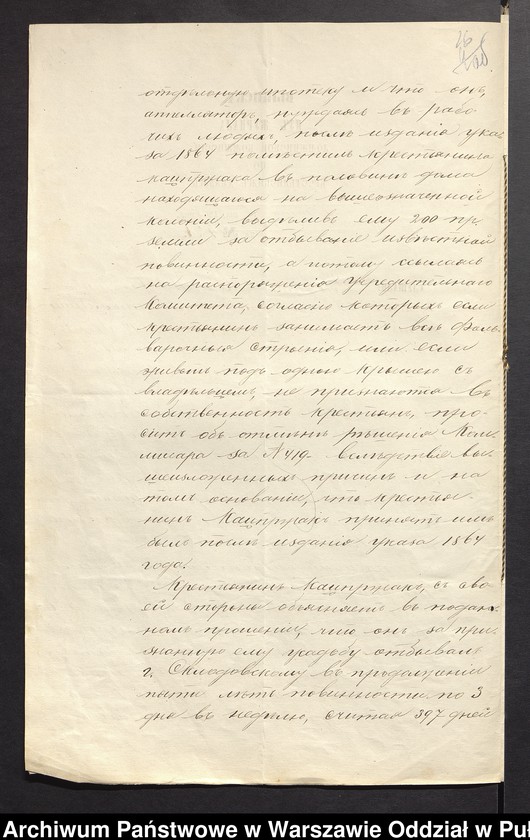 отдѣльную ипотеку и что онъ,
апелляторъ, нуждаясь въ рабо-
чихъ людяхъ, послѣ изданія ука-
за 1864 помѣстилъ крестьянина
въ половинѣ дома
находящагося на вышеозначенной
колоніи, выдѣливъ ему 200 пр.
земли за отбываніе извѣстной
повинности, а потому ссылаясь
на распоряженія Учредительнаго
Комитета, согласно которыхъ если
крестьянинъ занимаетъ всѣ фоль-
варочныя строенія, или если
живетъ подъ одною крышею съ
владѣльцемъ, не признаются въ
собственность крестьянъ, про-
ситъ объ отмѣнѣ рѣшенія Ком-
мисара за № 419. Вслѣдствіе вы-
шеизложенныхъ причинъ и на
томъ основаніи, что крестья-
нинъ принятъ имъ
былъ послѣ изданія указа 1864
года.
Крестьянинъ съ сво-
ей стороны объясняетъ въ подан-
номъ прошеніи, что онъ за при-
знанную ему усадьбу отбывалъ
г. въ продолженіи
пяти лѣтъ повинности по 3
дня въ недѣлю, считая 397 дней
Archiwum Państwowe w Warszawie Oddział w Pu